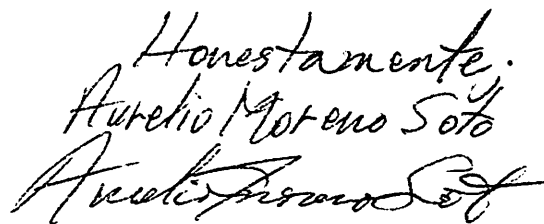 Honestamente,.
Aurelio Moreno Soto
Aurelio Moreno Soto